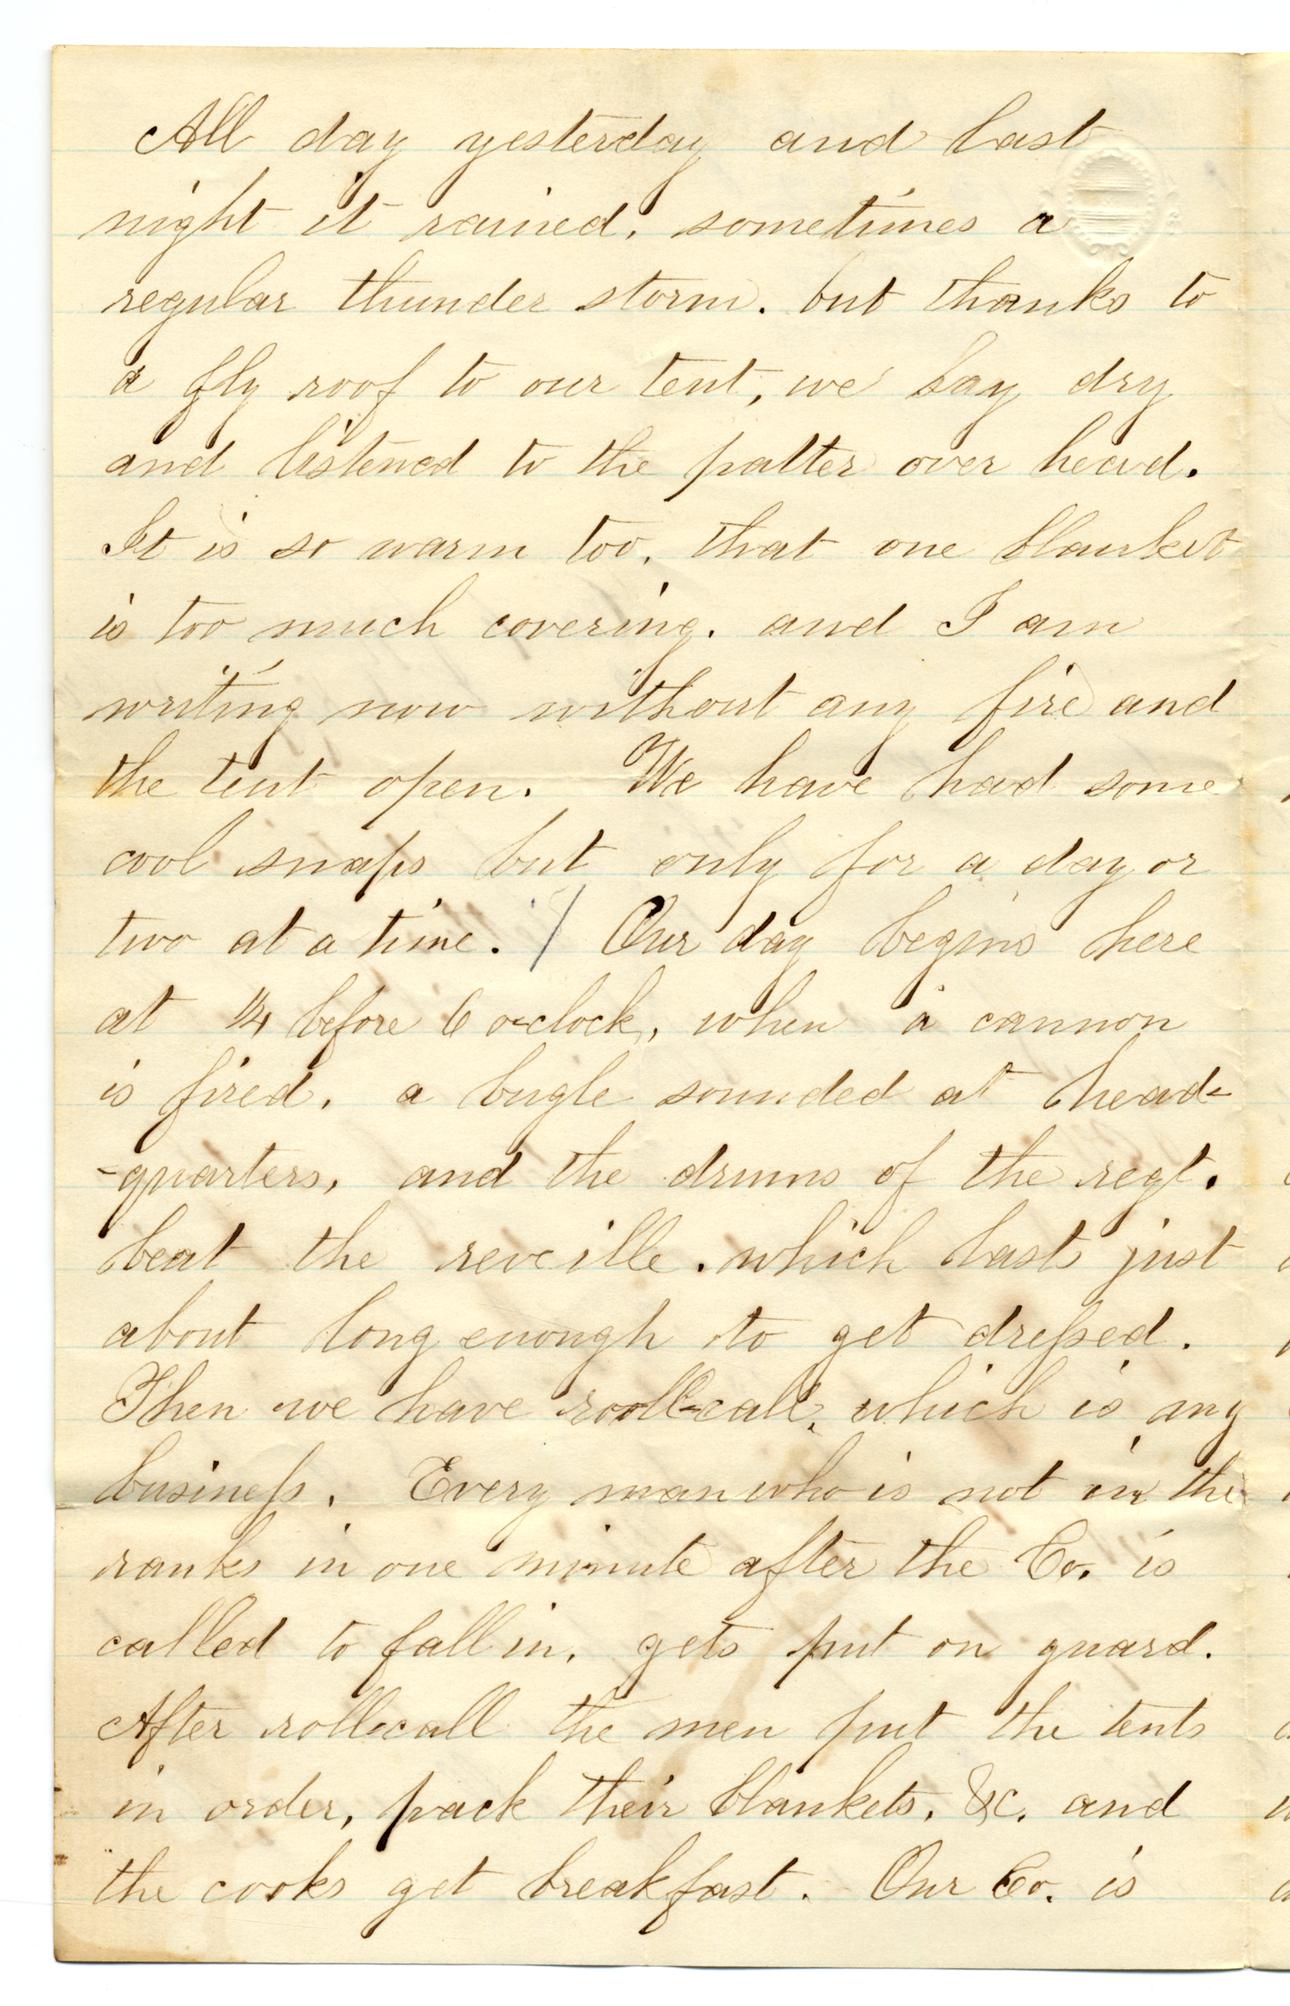 All day yesterday and last
night it rained, sometimes a
regular thunder storm. but thanks to
a fly roof to our tent, we lay dry
and listened to the patter over head.
It is so warm too, that one blanket
is too much covering. and I am
writing now without any fire and
the tent open. We have had some
cool snaps but only for a day or
two at a time. / Our day begins here
at 1/4 before 6 o-clock, when a cannon
is fired, a bugle sounded at head-
-quarters, and the drums of the regt.
beat the reveille. which lasts just
about long enough to get dressed.
Then we have roll-call, which is my
business. Every man who is not in the
ranks in one minute after the Co. is
called to fall in, gets put on guard.
After roll-call the men put the tents
in order, pack their blankets, &c. and
the cooks get breakfast. Our Co. is